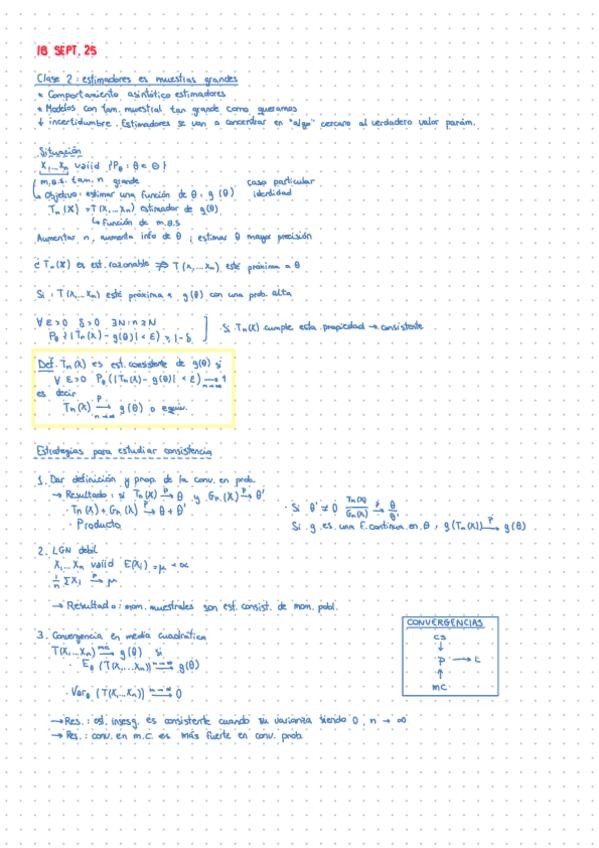 18 SEPT. 25
Clase 2: estimadores es muestras grandes
* Comportamiento asintótico estimadores
* Modelos con tam. muestral tan grande como queramos
↓ incertidumbre. Estimadores se van a concentrar en "algo" cercano al verdadero valor parám.
Situación
X₁...Xₙ vaiid {P_θ : θ ∈ Θ}
m.a.s. tam. n grande
↳ Objetivo: estimar una función de θ, g(θ) caso particular identidad
Tₙ(X) = T(X₁...Xₙ) estimador de g(θ)
↳ función de m.a.s
Aumentar n, aumenta info de θ ; estimar θ mayor precisión
¿Tₙ(X) es est. razonable ⇒ T(X₁...Xₙ) esté próxima a θ
Si: T(X₁...Xₙ) esté próxima a g(θ) con una prob. alta
∀ ε>0 δ>0 ∃N: n≥N
P_θ {|Tₙ(X) - g(θ)| < ε} ≥ 1-δ ] Si Tₙ(X) cumple esta propiedad → consistente
Def. Tₙ(X) es est. consistente de g(θ) si
∀ ε>0 P_θ (|Tₙ(X) - g(θ)| < ε) →_{n→∞} 1
es decir
Tₙ(X) →^P_{n→∞} g(θ) o equiv.
Estrategias para estudiar consistencia
1. Dar definición y prop. de la conv. en prob.
→ Resultado: si Tₙ(X) →^P θ y Gₙ(X) →^P θ'
· Tₙ(X) + Gₙ(X) →^P θ + θ' · Si θ' ≠ 0 Tₙ(X)/Gₙ(X) →^P θ/θ'
· Producto Si g es una F. continua en θ, g(Tₙ(X)) →^P g(θ)
2. LGN débil
X₁...Xₙ vaiid E(Xᵢ) = μ < ∞
1/n ΣXᵢ →^P μ
→ Resultado: mom. muestrales son est. consist. de mom. pobl.
3. Convergencia en media cuadrática
T(X₁...Xₙ) →^{mc} g(θ) si
· E_θ (T(X₁...Xₙ)) →^{n→∞} g(θ)
· Var_θ (T(X₁...Xₙ)) →^{n→∞} 0
CONVERGENCIAS
cs
↓
P → L
↑
mc
→ Res.: est. insesg. es consistente cuando su varianza tiende 0, n → ∞
→ Res.: conv. en m.c. es más fuerte en conv. prob.